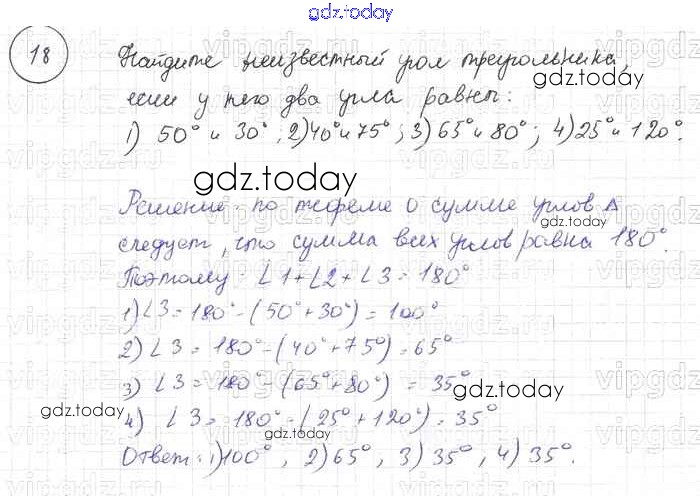 gdz.today
18
Найдите неизвестный угол треугольника,
если у него два угла равны:
1) 50° и 30°; 2) 40° и 75°; 3) 65° и 80°; 4) 25° и 120°.
gdz.today
Решение: по теореме о сумме углов Δ
gdz.today
следует, что сумма всех углов равна 180°.
Поэтому: ∠1+∠2+∠3=180°
1) ∠3=180°-(50°+30°)=100°
2) ∠3=180°-(40°+75°)=65°
3) ∠3=180°-(65°+80°)=35°
gdz.today
4) ∠3=180°-(25°+120°)=35°
gdz.today
Ответ: 1) 100°, 2) 65°, 3) 35°, 4) 35°.